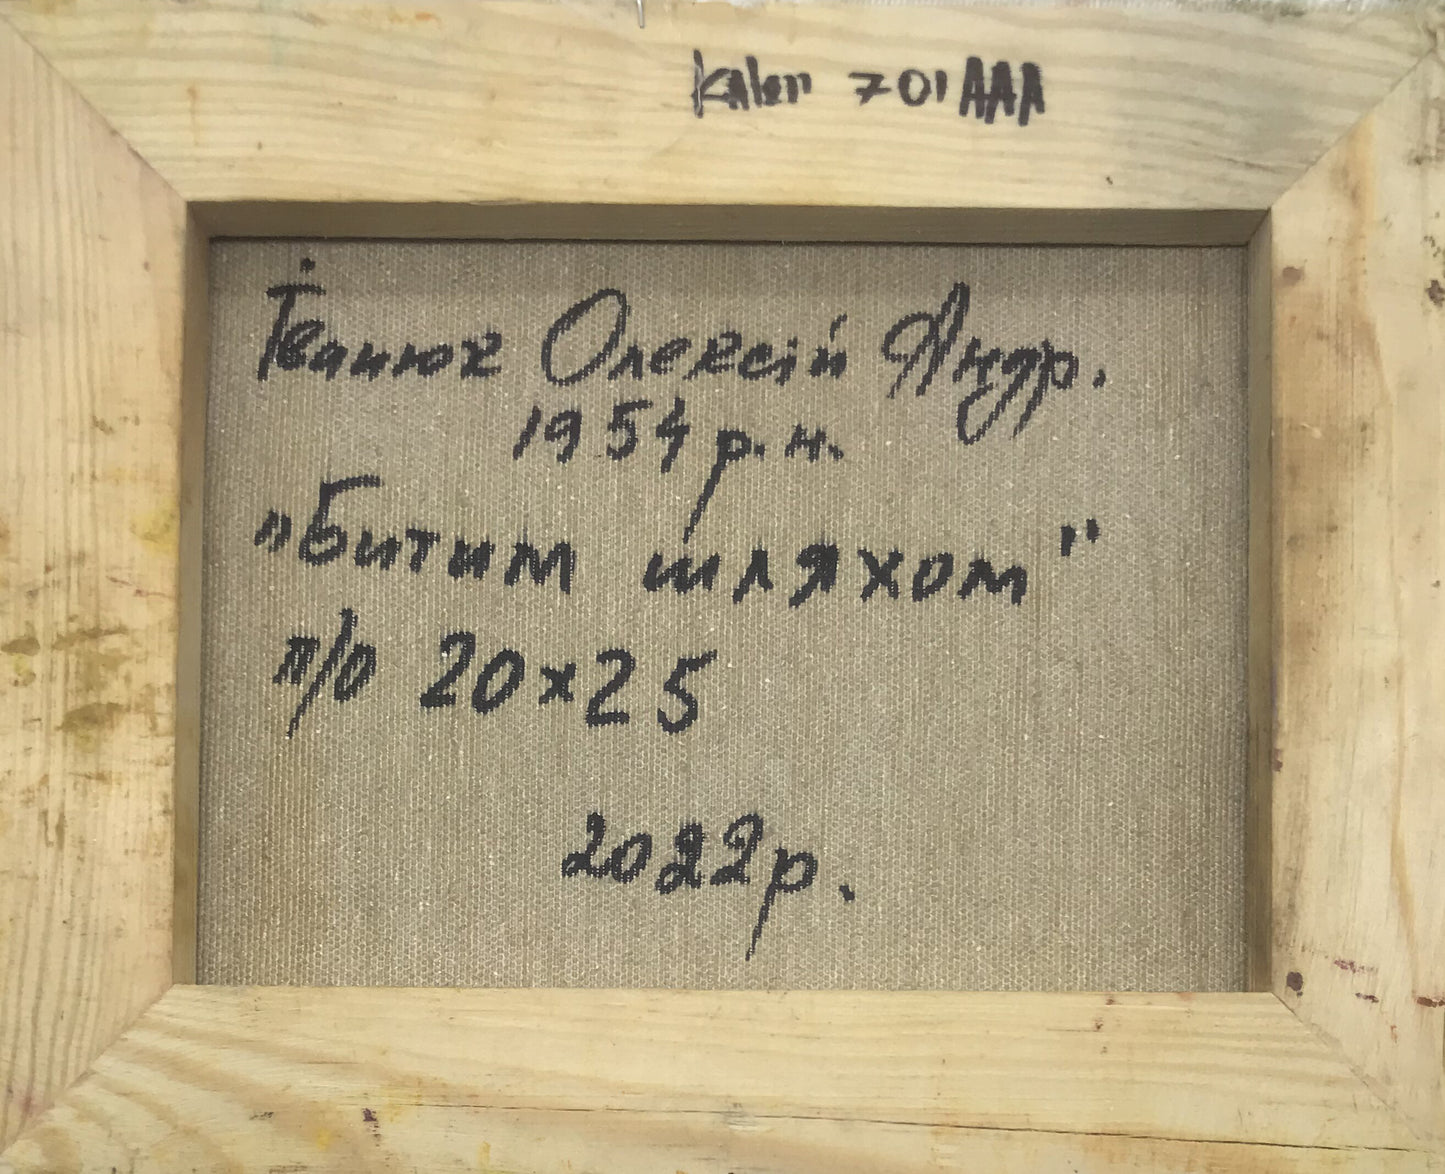 701 AAA
Іванюк Олексій Андр.
1954 р.н.
"Битим шляхом"
п/о 20×25
2022р.